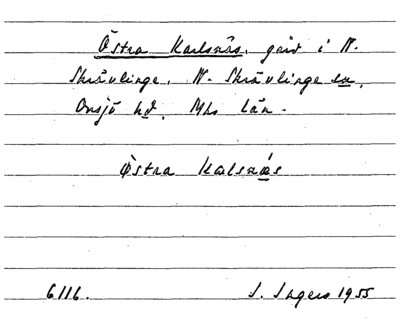 Östra Karlsnäs, gård i N.
Skrävlinge, N. Skrävlinge sn,
Onsjö hd, Mhs län.
Östra Kalsnäs
6116. S. Ingers 1955